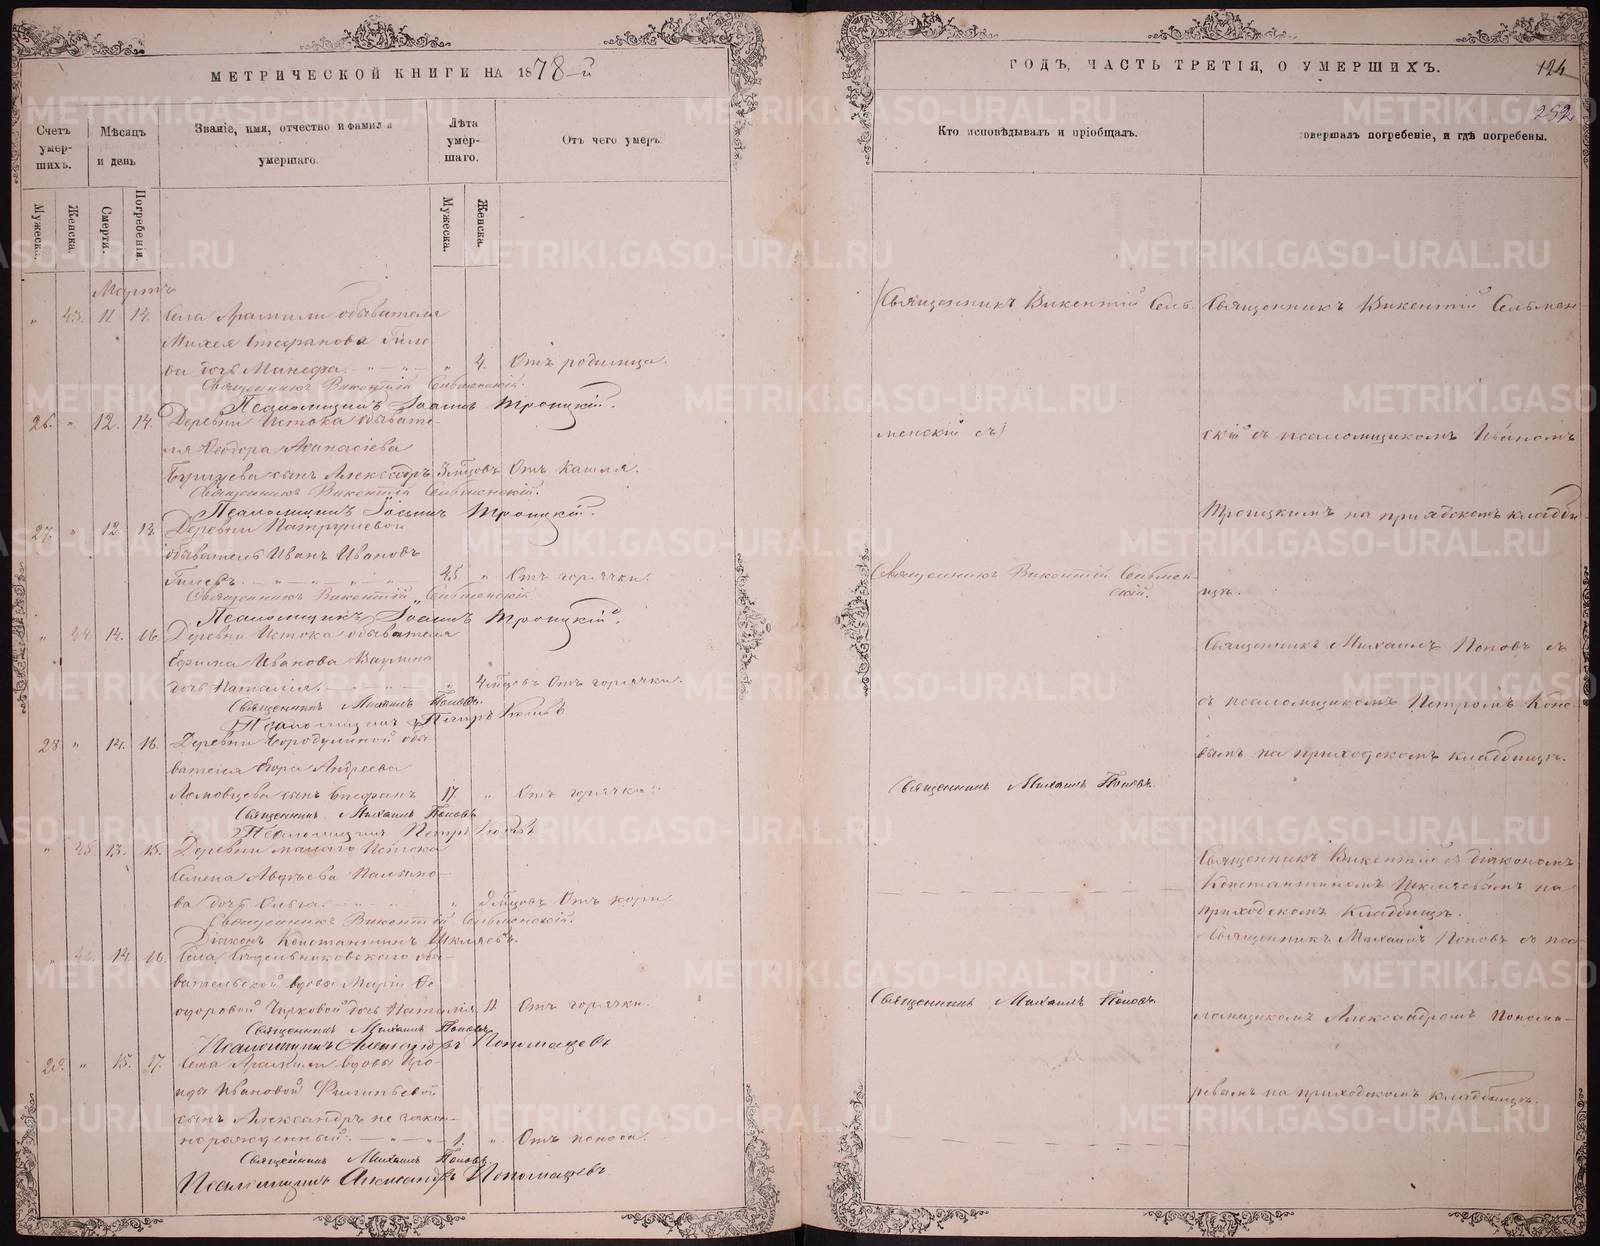 МЕТРИЧЕСКОЙ КНИГИ НА 1878-й
Счетъ умер-шихъ.
Мѣсяцъ и день
Званіе, имя, отчество и фамилія умершаго.
Лѣта умер-шаго.
Отъ чего умеръ.
Мужеска.
Женска.
Смерти.
Погребенія.
Мужеска.
Женска.
Мартъ
" 43. 11 14. Села Арамили обывателя
Михея Стефанова Гиле-
ва дочь Манефа. " 4. Отъ родимца.
Священникъ Викентій Сельменскій.
Псаломщикъ Іоаннъ Троицкій.
26. " 12. 14. Деревни Истока обывате-
ля Ѳеодора Аѳанасіева
сынъ Александръ 3 мѣсцовъ Отъ кашля.
Священникъ Викентій Сельменскій.
Псаломщикъ Іоаннъ Троицкій.
27. " 12. 13. Деревни Патрушевой
обыватель Иванъ Ивановъ
Гилевъ. 25 " Отъ горячки.
Священникъ Викентій Сельменскій
Псаломщикъ Іоаннъ Троицкій.
" 44. 14. 16. Деревни Истока обывателя
Ефима Иванова
дочь Наталія. " 4 мѣсцовъ Отъ горячки.
Священникъ Михаилъ Поповъ.
Псаломщикъ Петръ
28 " 14. 16. Деревни Бородулиной обы-
вателя Егора Андреева
сынъ Стефанъ 17. " Отъ горячки.
Священникъ Михаилъ Поповъ
Псаломщикъ Петръ
" 45. 13. 15. Деревни малаго Истока
Семена Авдѣева
ва дочь Ольга. " мѣсцовъ Отъ кори.
Священникъ Викентій Сельменскій.
Діаконъ Константинъ Шкляевъ.
" 14. 16. Села обы-
вательской вдовы Маріи Ѳе-
одоровой дочь Наталія 11. Отъ горячки.
Священникъ Михаилъ Поповъ
Псаломщикъ Александръ Пономаревъ
29. " 15. 17. Села Арамили вдовы Иро-
иды Ивановой Филипьевой
сынъ Александръ не закон-
норожденный. 1. " Отъ поноса.
Священникъ Михаилъ Поповъ
Псаломщикъ Александръ Пономаревъ
ГОДЪ, ЧАСТЬ ТРЕТІЯ, О УМЕРШИХЪ.
124
252
Кто исповѣдывалъ и пріобщалъ.
совершалъ погребеніе, и гдѣ погребены.
(Священникъ Викентій Сель-
менскій съ)
Священникъ Викентій Сельмен-
скій.
Священникъ Михаилъ Поповъ.
Священникъ Михаилъ Поповъ.
Священникъ Викентій Сельмен-
скій съ псаломщикомъ Иваномъ
Троицкимъ на приходскомъ кладби-
щѣ.
Священникъ Михаилъ Поповъ съ
съ псаломщикомъ Петромъ
вымъ на приходскомъ кладбищѣ.
Священникъ Викентій съ діакономъ
Константиномъ Шкляевымъ на
приходскомъ кладбищѣ.
Священникъ Михаилъ Поповъ съ пса-
ломщикомъ Александромъ Понома-
ревымъ на приходскомъ кладбищѣ.
METRIKI.GASO-URAL.RU